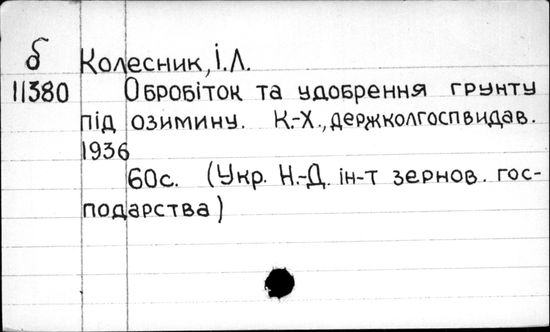 б Колесник, І.Л.
11380 Обробіток та удобрення грунту
під озимину. К.-Х., держколгоспвидав.
1936
60с. (Укр. Н.-Д. ін-т зернов. гос-
подарства)